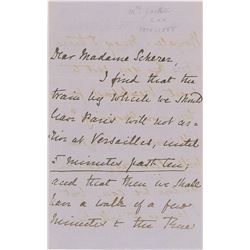 Mrs Gaskell
Dear Madame Scherer,
I find that the
train by which we should
leave Paris will not ar-
rive at Versailles, until
5 minutes past ten,
and that then we shall
have a walk of a few
minutes to the Rue